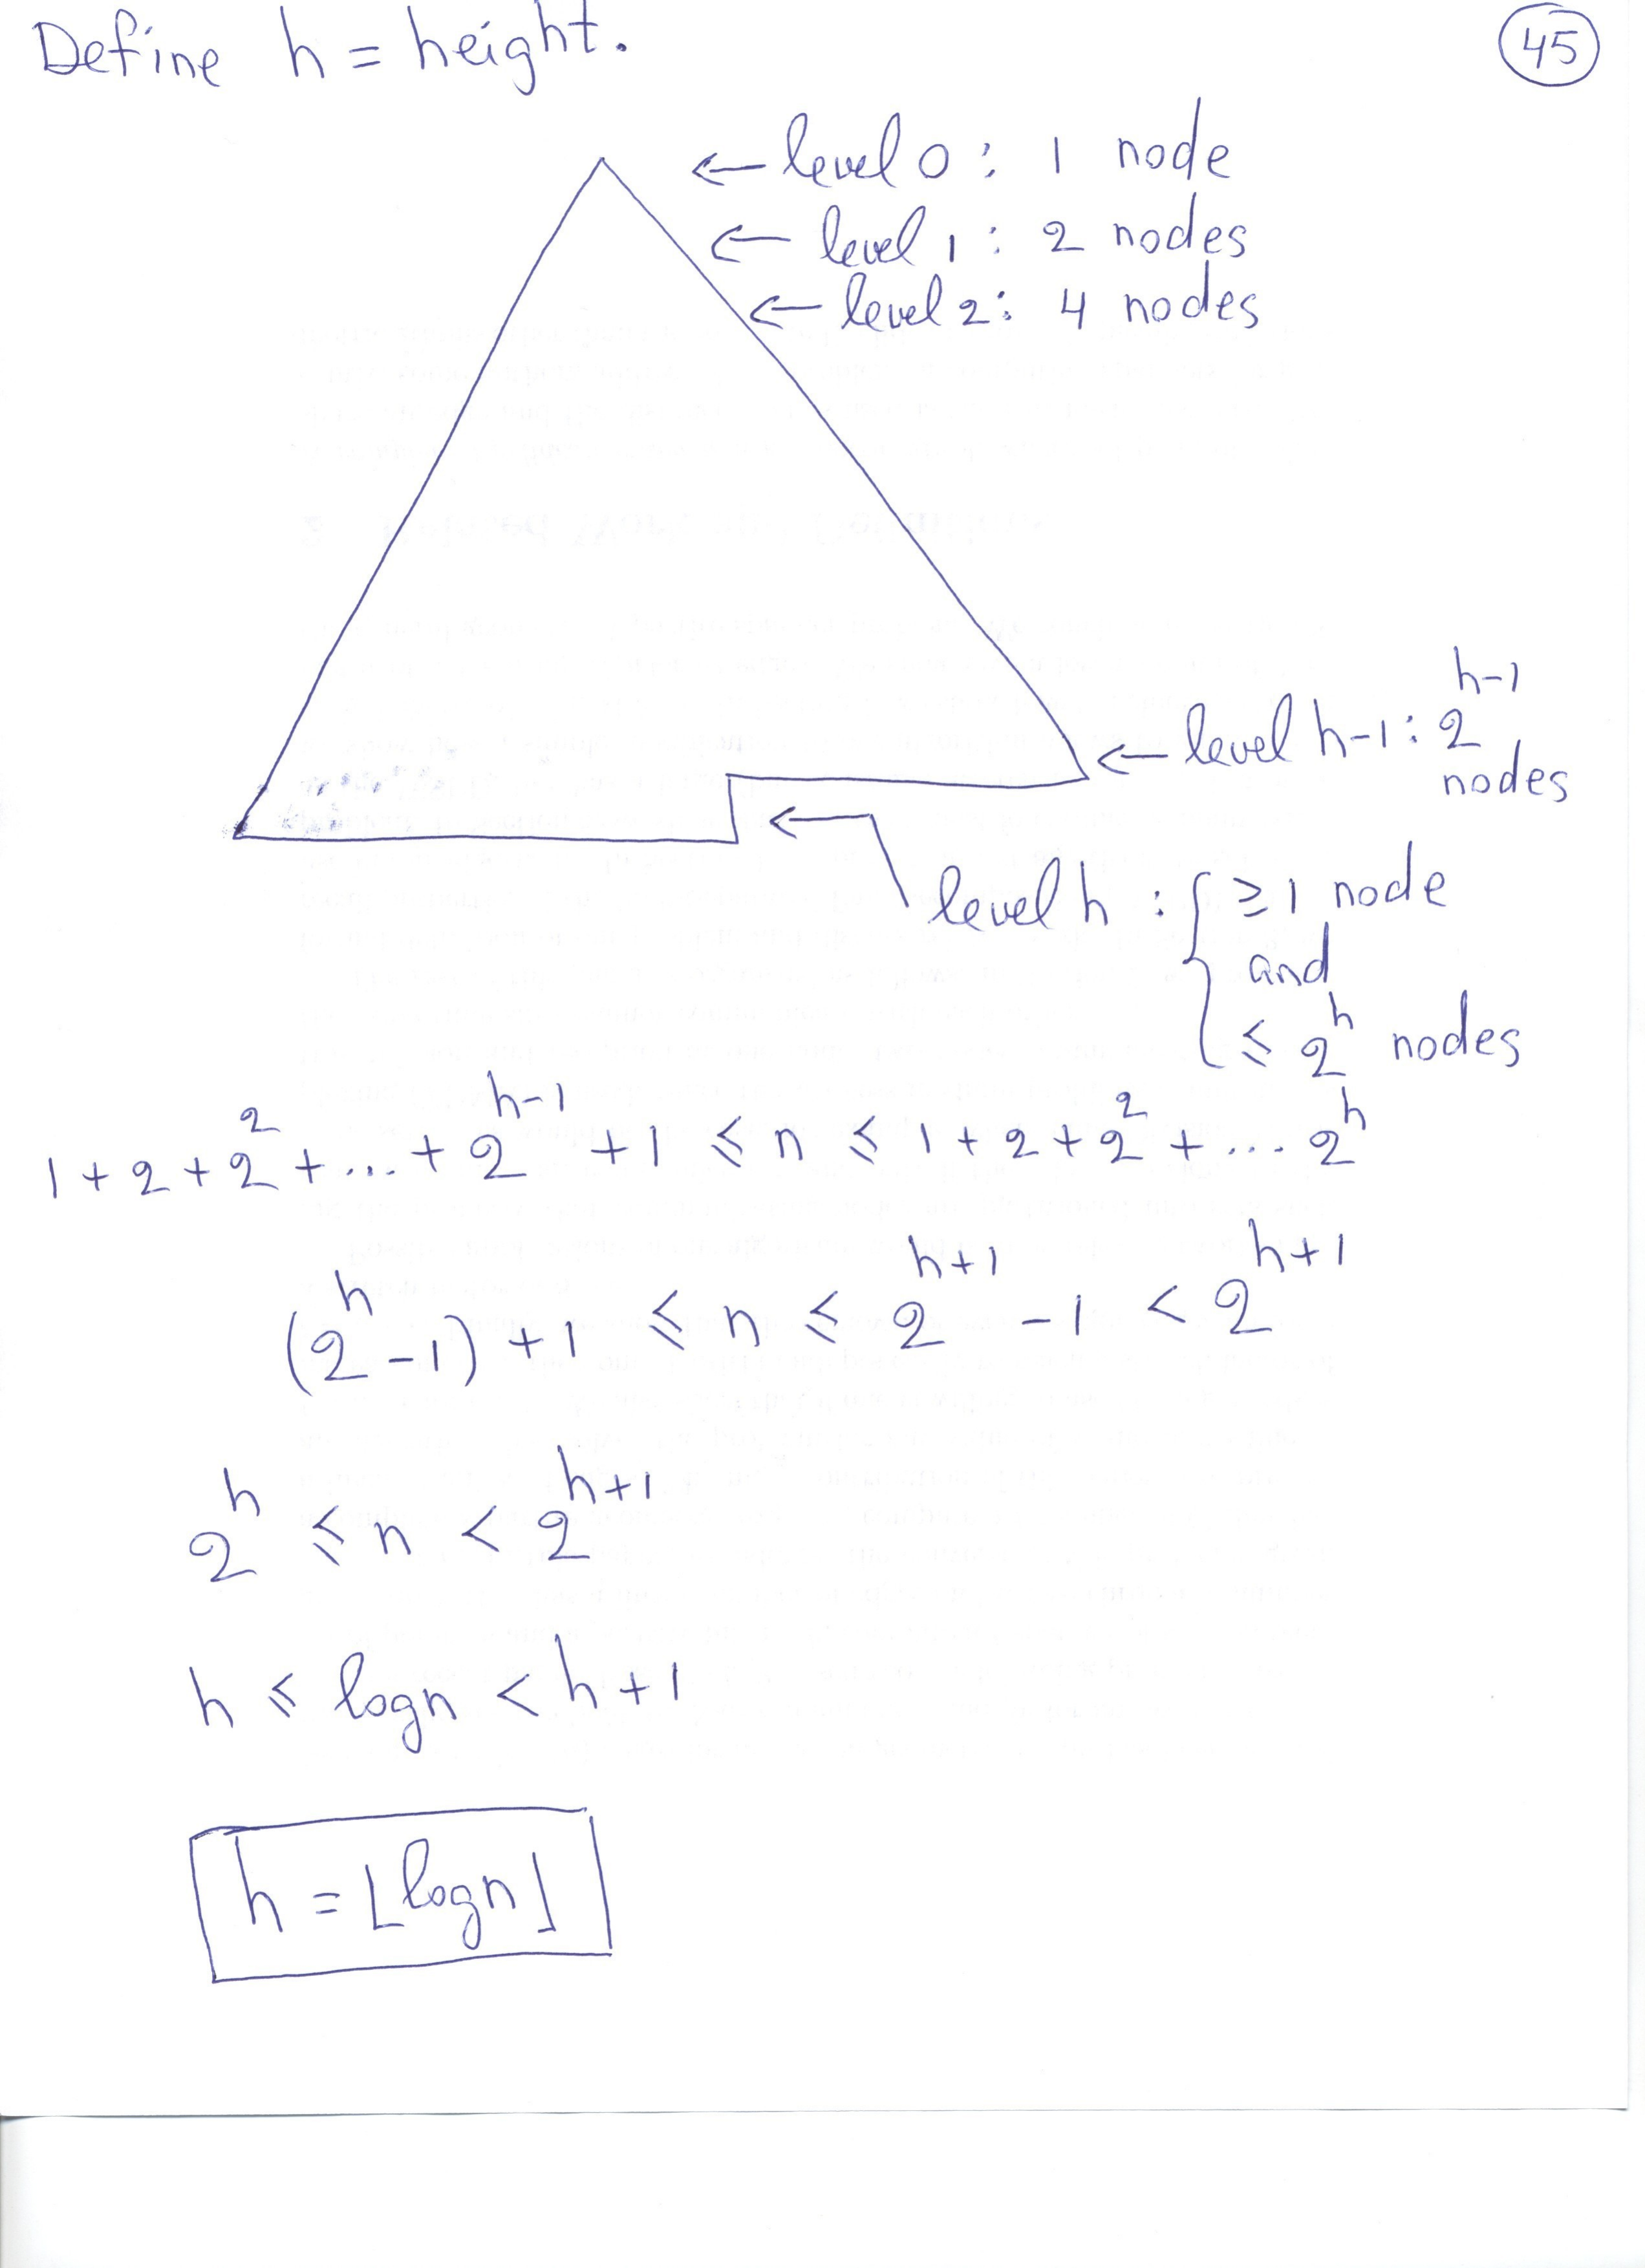 Define h = height.
45
← level 0 : 1 node
← level 1 : 2 nodes
← level 2 : 4 nodes
← level h-1 : 2^{h-1}
nodes
level h : { ≥ 1 node
and
≤ 2^h nodes
1 + 2 + 2^2 + ... + 2^{h-1} + 1 ≤ n ≤ 1 + 2 + 2^2 + ... 2^h
(2^h - 1) + 1 ≤ n ≤ 2^{h+1} - 1 < 2^{h+1}
2^h ≤ n < 2^{h+1}
h ≤ logn < h + 1
h = ⌊logn⌋